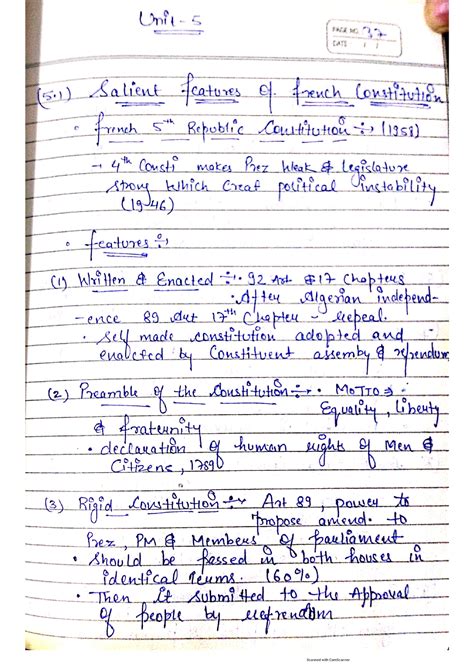 Unit-5
PAGE NO. 37
DATE / /
(5.1) Salient features of french Constitution
• french 5th Republic Constitution ÷ (1958)
→ 4th Consti makes Prez Weak & legislature
strong which creat political instability
(1946)
• features ÷
(1) Written & Enacted ÷ • 92 Art & 17 Chapters
• After Algerian independ-
-ence 89 Art 17th Chapter - repeal.
• Self made constitution adopted and
enacted by Constituent assemby & referendum
(2) Preamble of the Constitution ÷ • MOTTO ⇒
Equality, liberty
& fraternity
• declaration of human rights of Men &
Citizens, 1789
(3) Rigid Constitution ÷ Art 89, power to
propose amend. to
Prez, PM & Members of parliament
• Should be passed in both houses in
identical terms. (60%)
• Then it submitted to the Approval
of people by referendom
Scanned with CamScanner